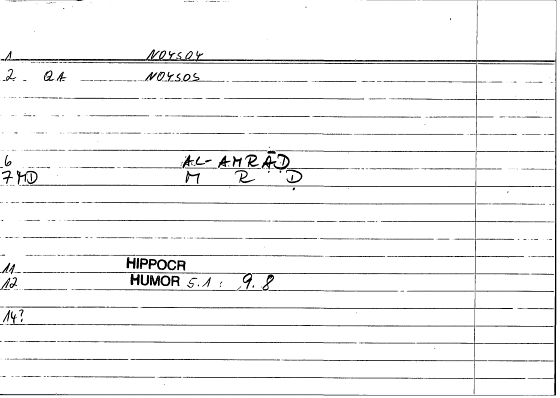 1 NOYSOY
2 QA NOYSOS
6 AL-AMRĀḌ
7 MD M R Ḍ
11 HIPPOCR
12 HUMOR 5.1 : 9.8
14?